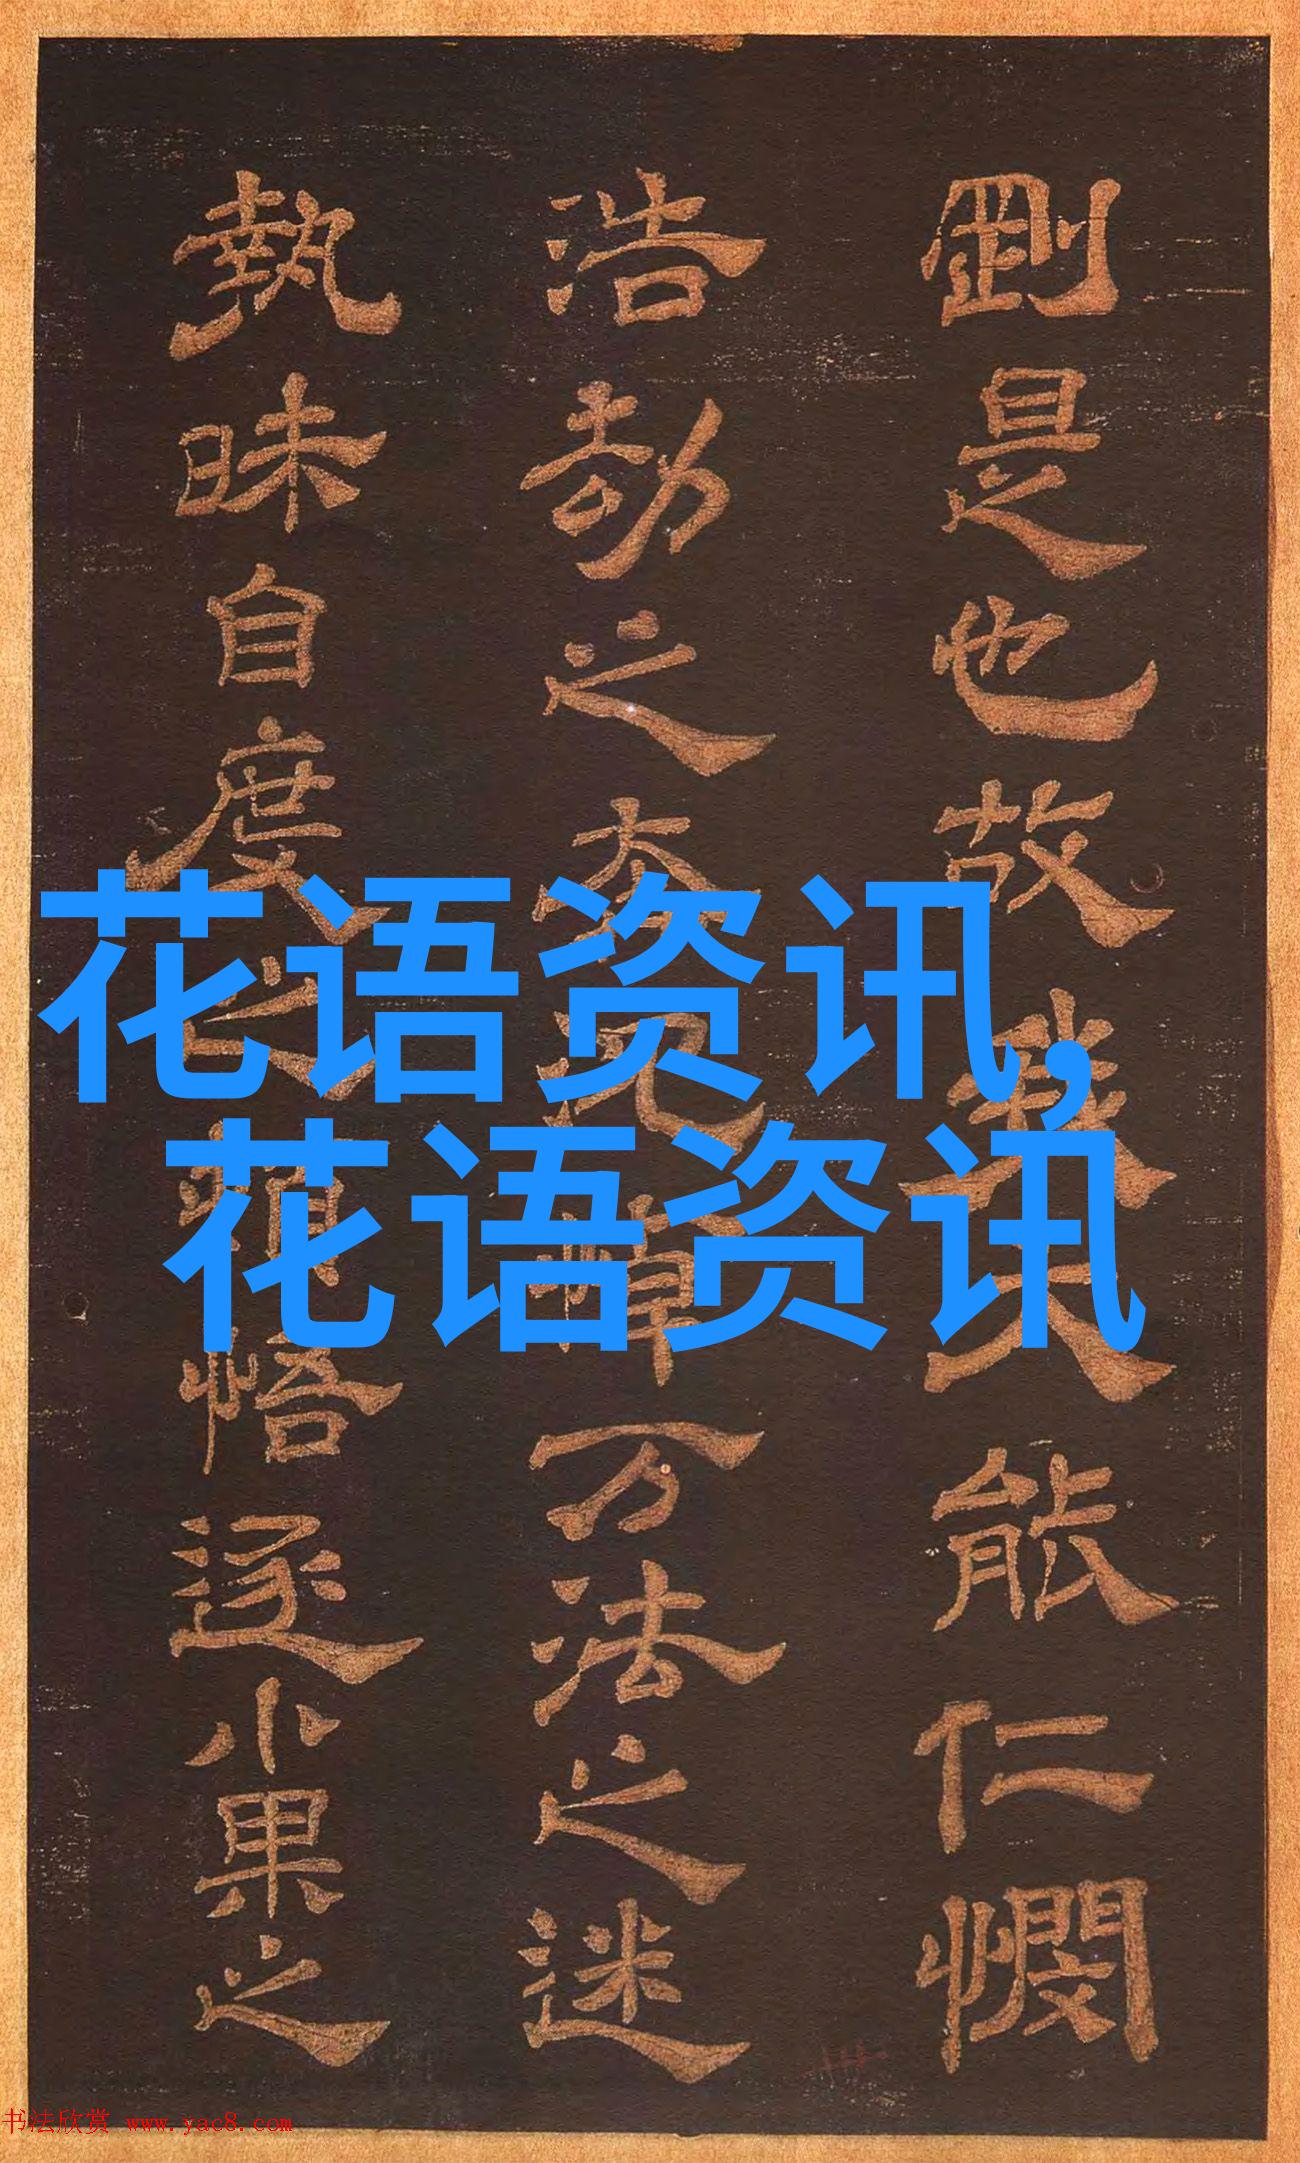 剛是也故我大能仁憫
浩劫之沉悼万法之迷
執昧自度之頴悟逐小果之
花语资讯,
花语资讯
书法欣赏 www.yac8.com